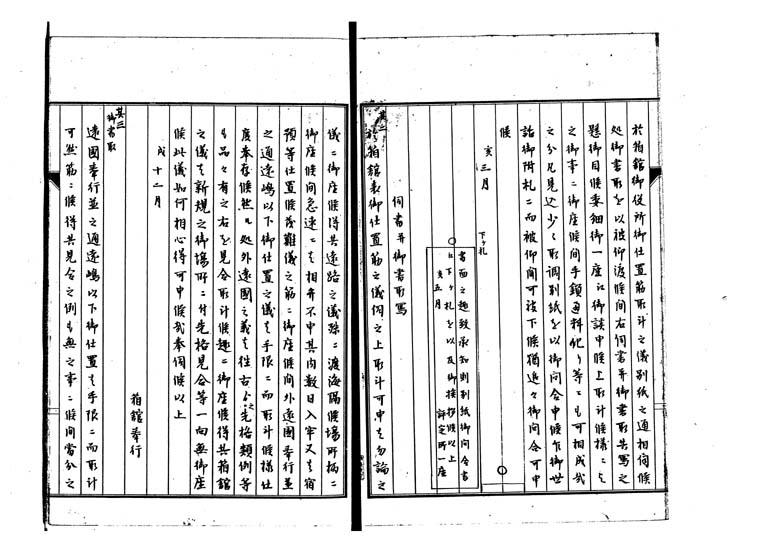 於箱館御役所御仕置筋取計之儀別紙之通相伺候
処御書取を以被仰渡候間右伺書并御書取共写之
懸御目候委細御一座江御談申候上取計候様ニも
之御事ニ御座候間手鎖過料他り等ニも可相成哉
之分凡見込少々取調別紙を以御問合申候乍御世
話御附札ニ而被仰聞可被下候猶追々御問合可申
候
亥三月
下ケ札
書面之趣致承知則別紙御問合書
江下ケ札を以及御挨拶候以上
亥五月
評定所一座
伺書并御書取写
其二
於箱館表御仕置筋之儀伺之上取計可申は勿論之
儀ニ御座候得共遠路之儀殊ニ渡海隔候場所柄ニ
御座候間急速ニも相弁不申其内数日入牢又は宿
預等仕置候茂難儀之筋ニ御座候間外遠国奉行並
之通遠嶋以下御仕置之儀は手限ニ而取計候様仕
度奉存候然ル処外遠国之義は往古より先格類例等
も品々有之右を見合取計候趣ニ御座候得共箱館
之儀は新規之御場所ニ付先格見合等一向無御座
候此儀如何相心得可申候哉奉伺候以上
戌十二月
箱館奉行
其三
御書取
遠国奉行並之通遠嶋以下御仕置は手限ニ而取計
可然筋ニ候得共見合之例も無之事ニ候間当分之